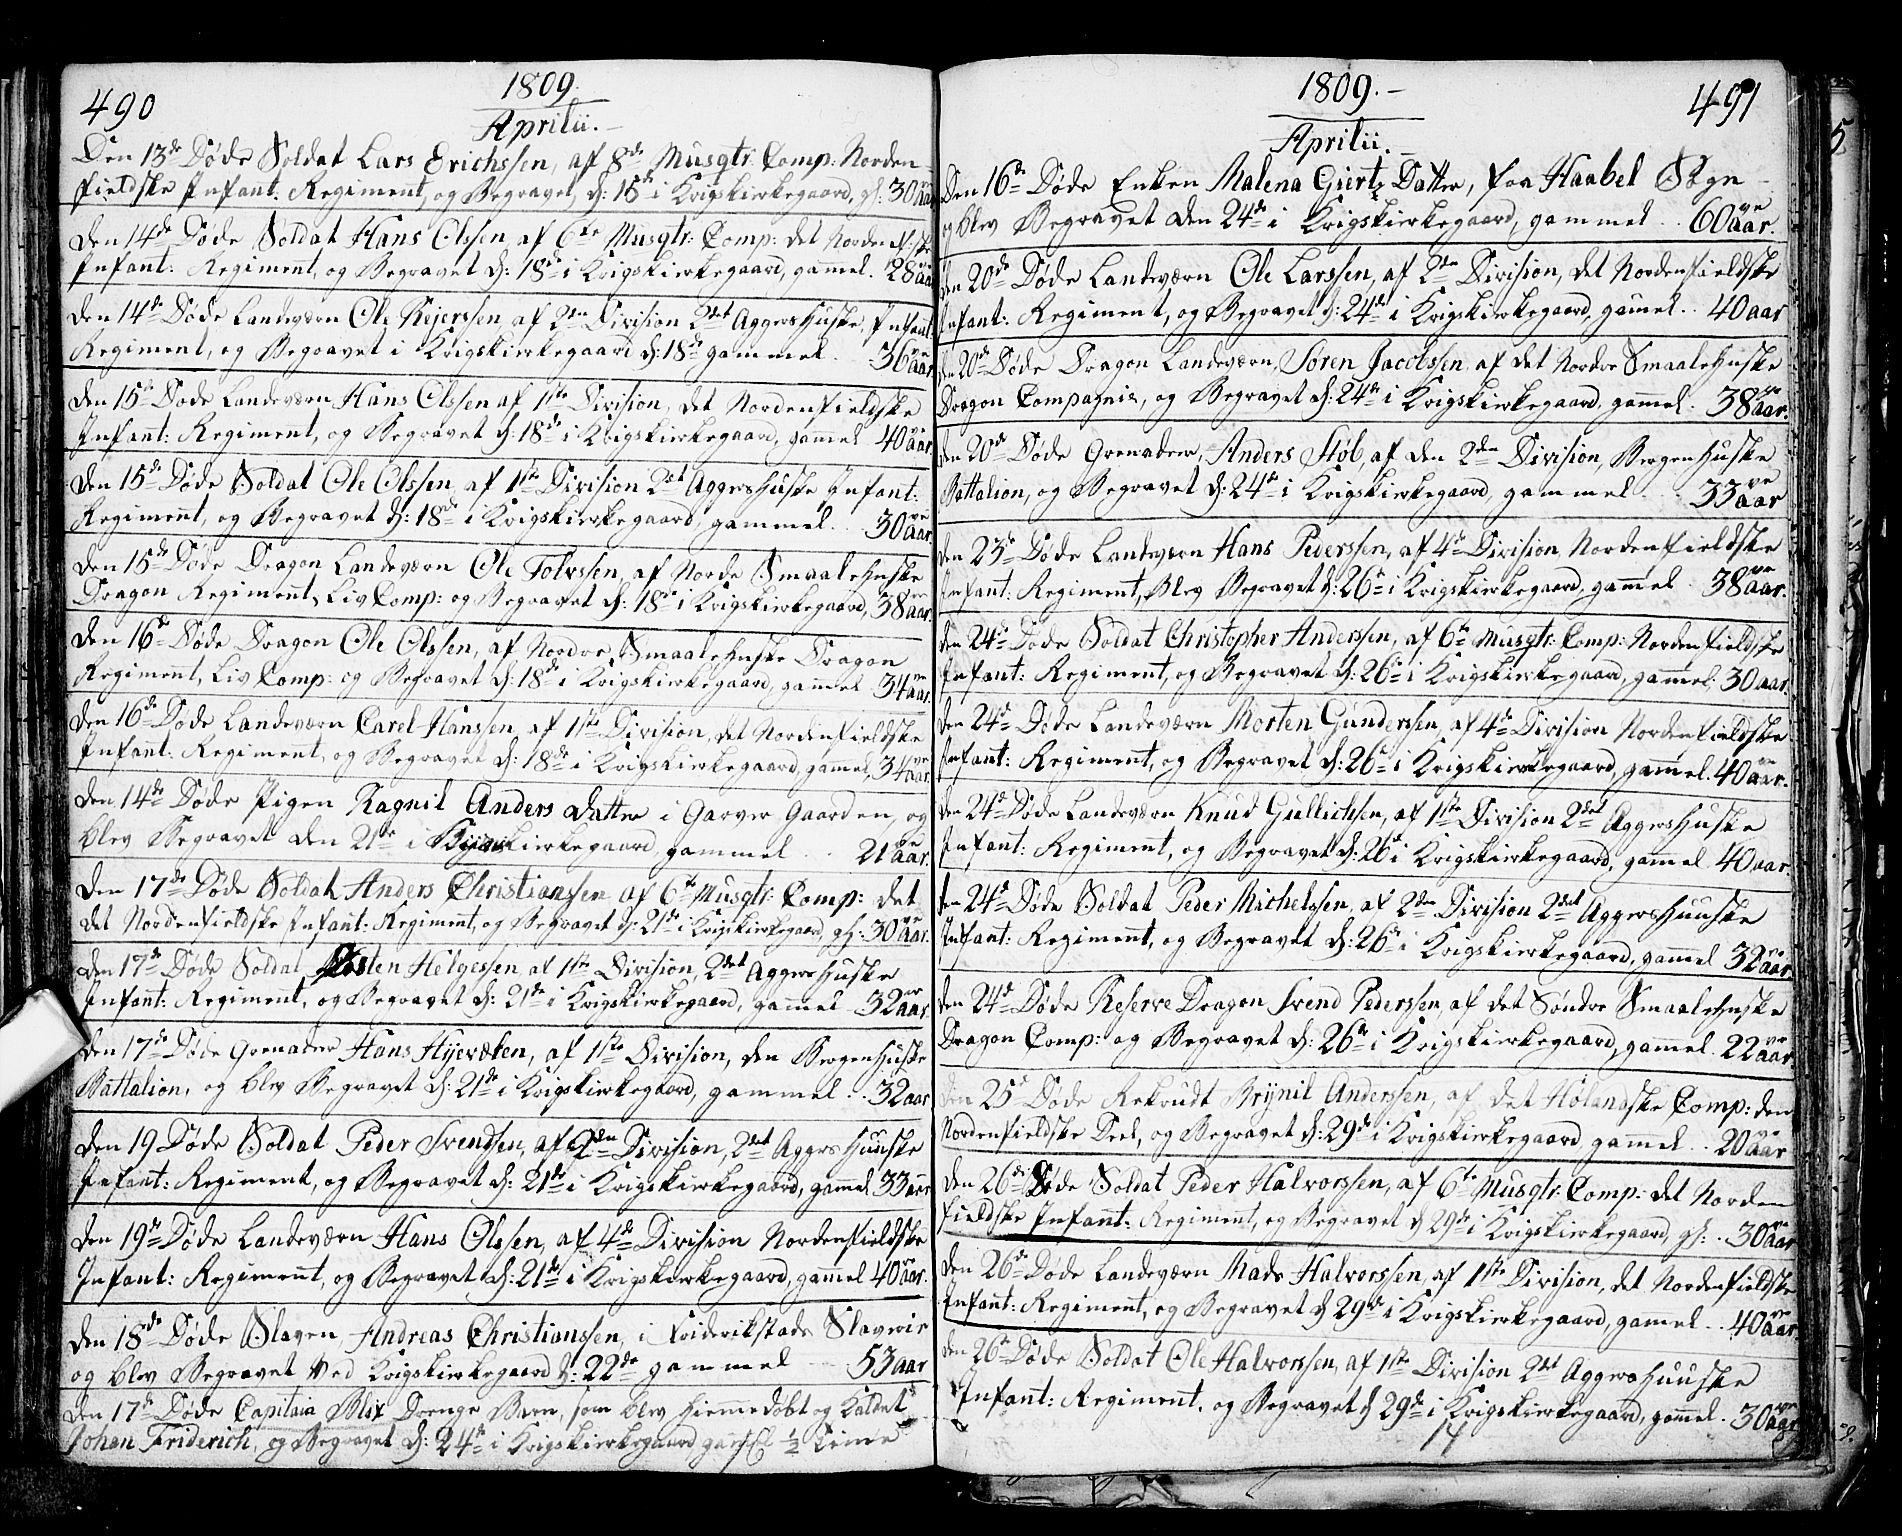 490
1809.
Aprilii.
Den 13de Døde Soldat Lars Erichssen, af 8de Musqtr: Comp: Norden-
fieldske Infant: Regiment, og Begravet, d: 15de i Krigskirkegaard, gl: 30 aar
Den 14de Døde Soldat Hans Olssen, af 6te Musqtr: Comp: det Nordenf:ske
Infant: Regiment, og Begravet d: 18de i Krigskirkegaard, gammel. 28 aar
Den 14de Døde Landeværn Ole Rejerssen, af 2den Division 2det Aggershuske, Infant:
Regiment, og Begravet i Krigskirkegaard d: 18de gammel. 36 aar.
Den 15de Døde Landeværn Hans Olssen af 1ste Division, det Nordenfieldske
Infant: Regiment, og Begravet d: 18de i Krigskirkegaard, gamel 40 aar.
Den 15de Døde Soldat Ole Olssen, af 1ste Division 2det Aggershuske Infant:
Regiment, og Begravet d: 18de i Krigskirkegaard, gammel. 30 aar.
Den 15de Døde Dragon Landeværn Ole Tolvssen, af Nordre Smaalehnske
Dragon Regiment, Liv Comp: og Begravet d: 18de i Krigskirkegaard, 38 aar.
Den 16de Døde Dragon Ole Olssen, af Nordre Smaalehnske Dragon
Regiment, Liv Comp: og Begravet d: 18de i Krigskirkegaard, gamel 34 aar.
Den 16de Døde Landeværn Carel Hanssen, af 1ste Division, det Nordenfieldske
Infant: Regiment, og Begravet d: 18de i Krigskirkegaard, gammel, 34 aar.
Den 14de Døde Pigen Ragnil Anders Datter i Garver Gaarden, og
blev Begravet den 21de i kirkegaard, gammel 21 aar.
Den 17de Døde Soldat Anders Christianssen af 6te Musqtr: Comp: det
det Nordenfieldske Infant: Regiment, og Begravet d: 21de i Krigskirkegaard, gl: 30 aar.
Den 17de Døde Soldat Helgessen, af 1ste Division, 2det Aggershuske
Infant: Regiment, og Begravet d: 21de i Krigskirkegaard, gammel 32 aar
Den 17de Døde Grenader Hans Hyevæken, af 1ste Division, den Bergenhuske
Battalion, og blev Begravet d: 21de i Krigskirkegaard, gammel. 32 aar
Den 19 Døde Soldat Peder Svendssen, af 2den Division, 2det Aggershuuske
Infant: Regiment, og Begravet d: 21de i Krigskirkegaard, gammel 33 aar
Den 19de Døde Landeværn Hans Olssen, af 4de Division Nordenfieldske
Infant: Regiment, og Begravet d: 21de i Krigskirkegaard, gammel 40 aar.
Den 18de Døde Slaven Andreas Christianssen, i Friderikstads Slaverie
og blev Begravet ved Krigskirkegaard d: 22de gammel 53 aar
Den 17de Døde Capitain Blix Drenge Barn, som blev hiemmedøbt og Kaldet
Johan Friderich, og Begravet d: 24de i Krigskirkegaard gamel 1/2 Time
1809.-
491
Aprilii.
Den 16de Døde Enken Malena Giertz Datter, fra Haabel Sogn
og blev Begravet den 24de i Krigskirkegaard, gammel 60 aar.
Den 20de Døde Landeværn Ole Larssen, af 2den Division, det Nordenfieldske
Infant: Regiment, og Begravet d: 24de i Krigskirkegaard, gamel.. 40 aar
den 20de Døde Dragon Landeværn, Søren Jacobssen, af det Nordre Smaalehnske
Dragon Compagnie, og Begravet d: 24de i Krigskirkegaard, gamel. 38 aar.
den 20de Døde Grenadeer, Anders Støb, af den 2den Division, Bergenhuske
Battalion, og Begravet d: 24de i Krigskirkegaard, gammel 33 aar
den 23de Døde Landeværn Hans Pederssen, af 4de Division, Nordenfieldske
Infant: Regiment, Blev Begravet d: 26de i Krigskirkegaard, gamel 38 aar.
den 24de Døde Soldat Christopher Anderssen, af 6te Musqtr: Comp: Nordenfieldske
Infant: Regiment, og Begravet d: 26de i Krigskirkegaard, gammel. 30 aar.
den 24de Døde Landeværn Morten Gunderssen, af 4de Division Nordenfieldske
Infant: Regiment, og Begravet d: 26de i Krigskirkegaard, gammel. 40 aar.
den 24de Døde Landeværn Knud Gullichsen, af 1ste Division 2det Aggershuske
Infant: Regiment, og Begravet d: 26de i Krigskirkegaard, gammel 40 aar.
den 24de Døde Soldat Peder Michelssen, af 2den Division 2det Aggershuuske
Infant: Regiment, og Begravet d: 26de i Krigskirkegaard, gammel 32 aar.
den 24de Døde Reserve Dragon Svend Pederssen, af det Søndre Smaalehnske
Dragon Comp: og Begravet d: 26de i Krigskirkegaard, gammel. 22 aar
Den 25de Døde Rekrudt Brynil Anderssen, af det Hølandske Comp: den
Nordenfieldske Deel, og Begravet d: 29de i Krigskirkegaard gammel .. 20 aar
Den 26de Døde Soldat Peder Halvorssen, af 6te Musqtr: Comp: det Norden
fieldske Infant: Regiment, og Begravet d 29de i Krigskirkegaard, gl: . 30 aar
Den 26de Døde Landeværn Mads Halvorssen, af 1ste Division, det Nordenfieldske
Infant: Regiment, og Begravet d 29de i Krigskirkegaard, gamel .. 40 aar.
den 26de Døde Soldat Ole Halvorssen, af 1ste Division 2det Aggershuuske
Infant: Regiment, og Begravet d 29de i Krigskirkegaard, gammel. 30 aar
14